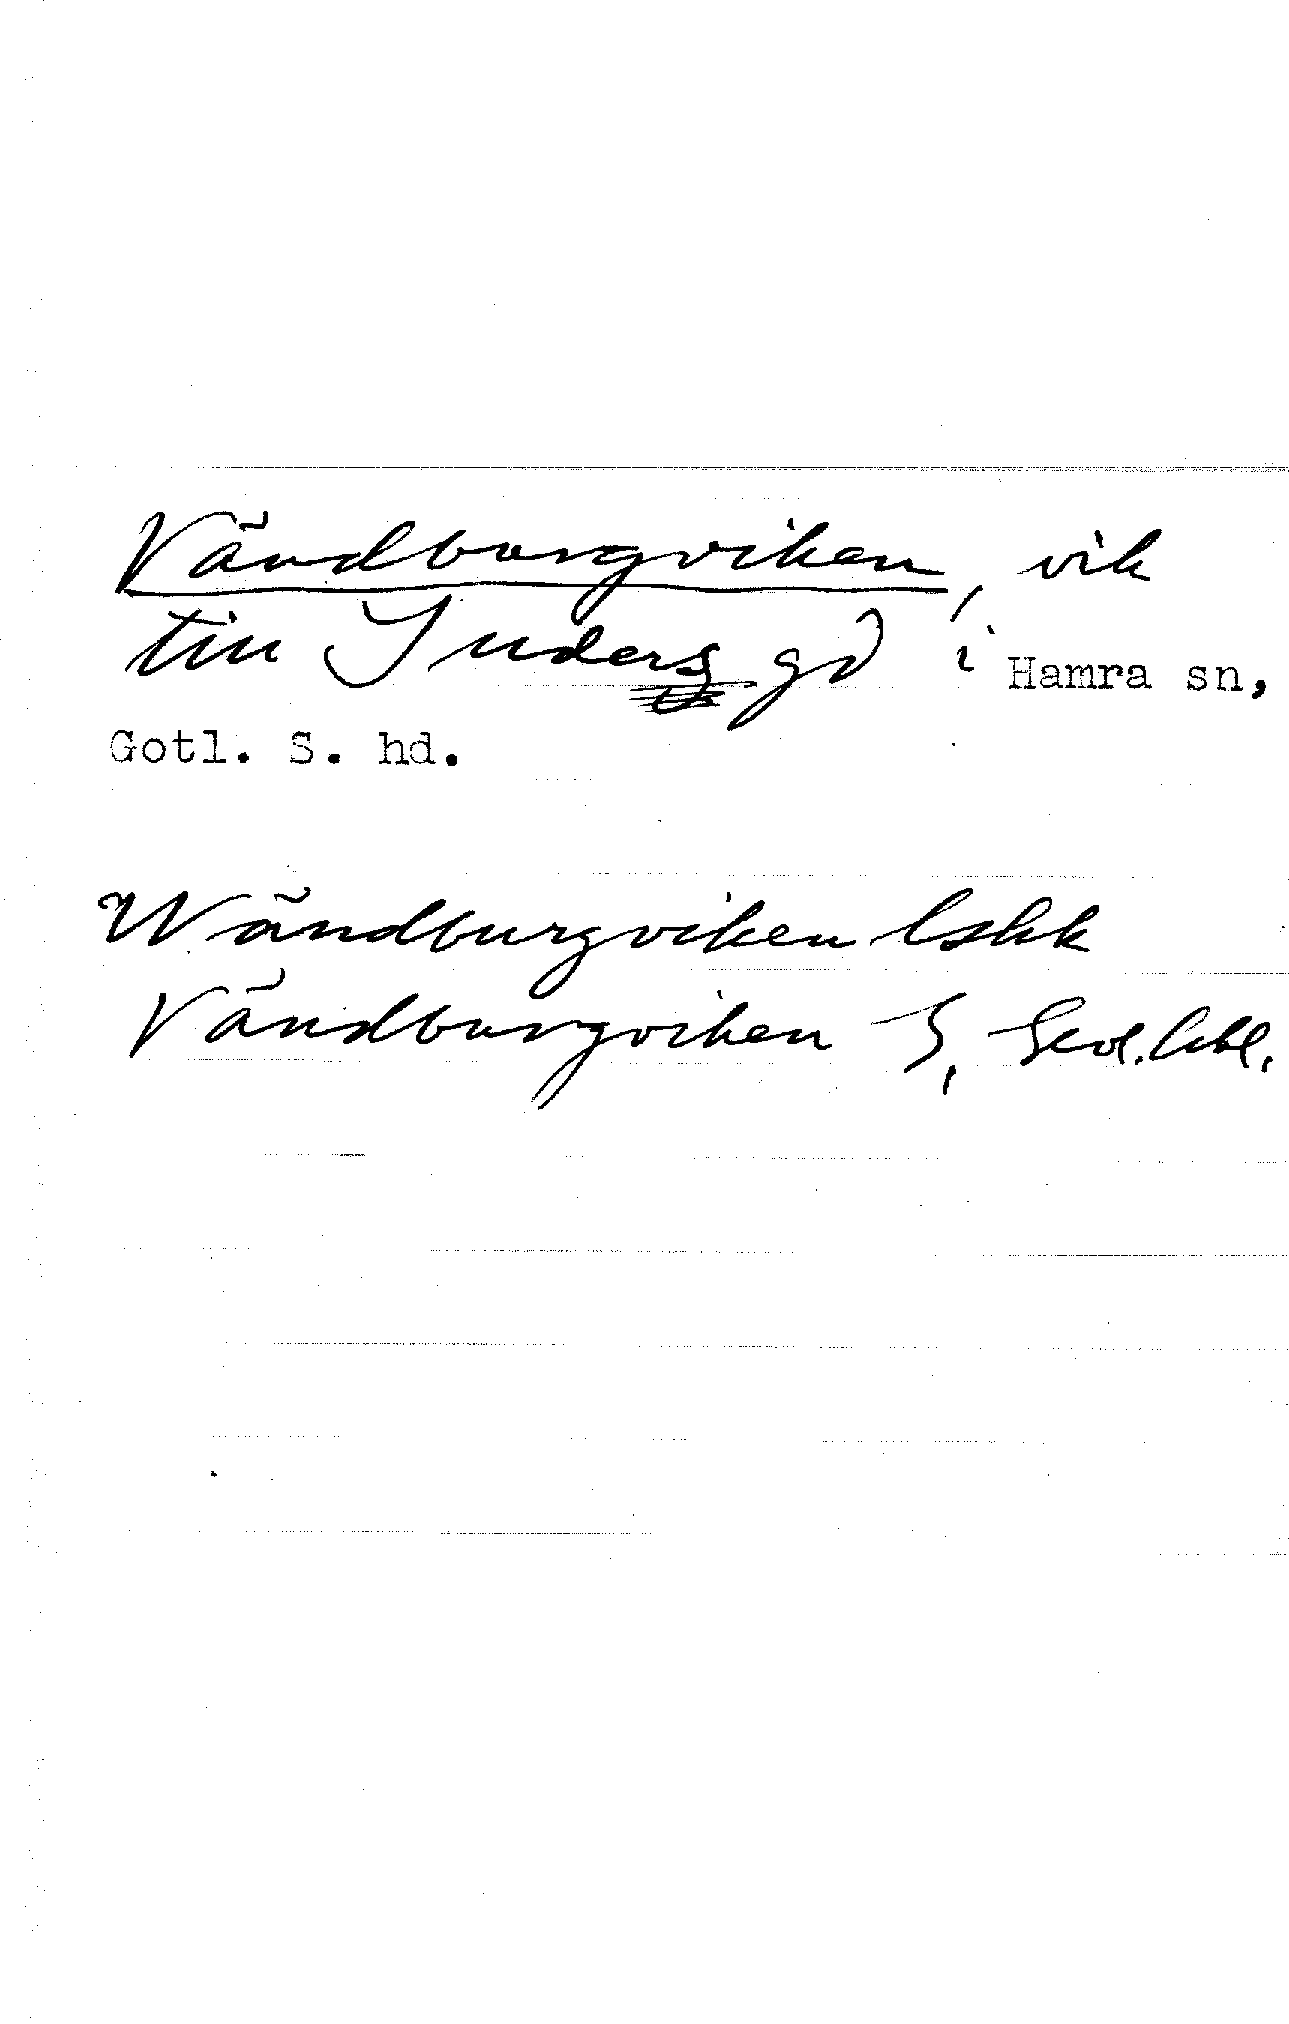 Vändburgviken, vik
till Suders gd i Hamra sn,
Gotl. S. hd.
Wändburgviken lskk
Vändburgviken S, Geol. kbl.